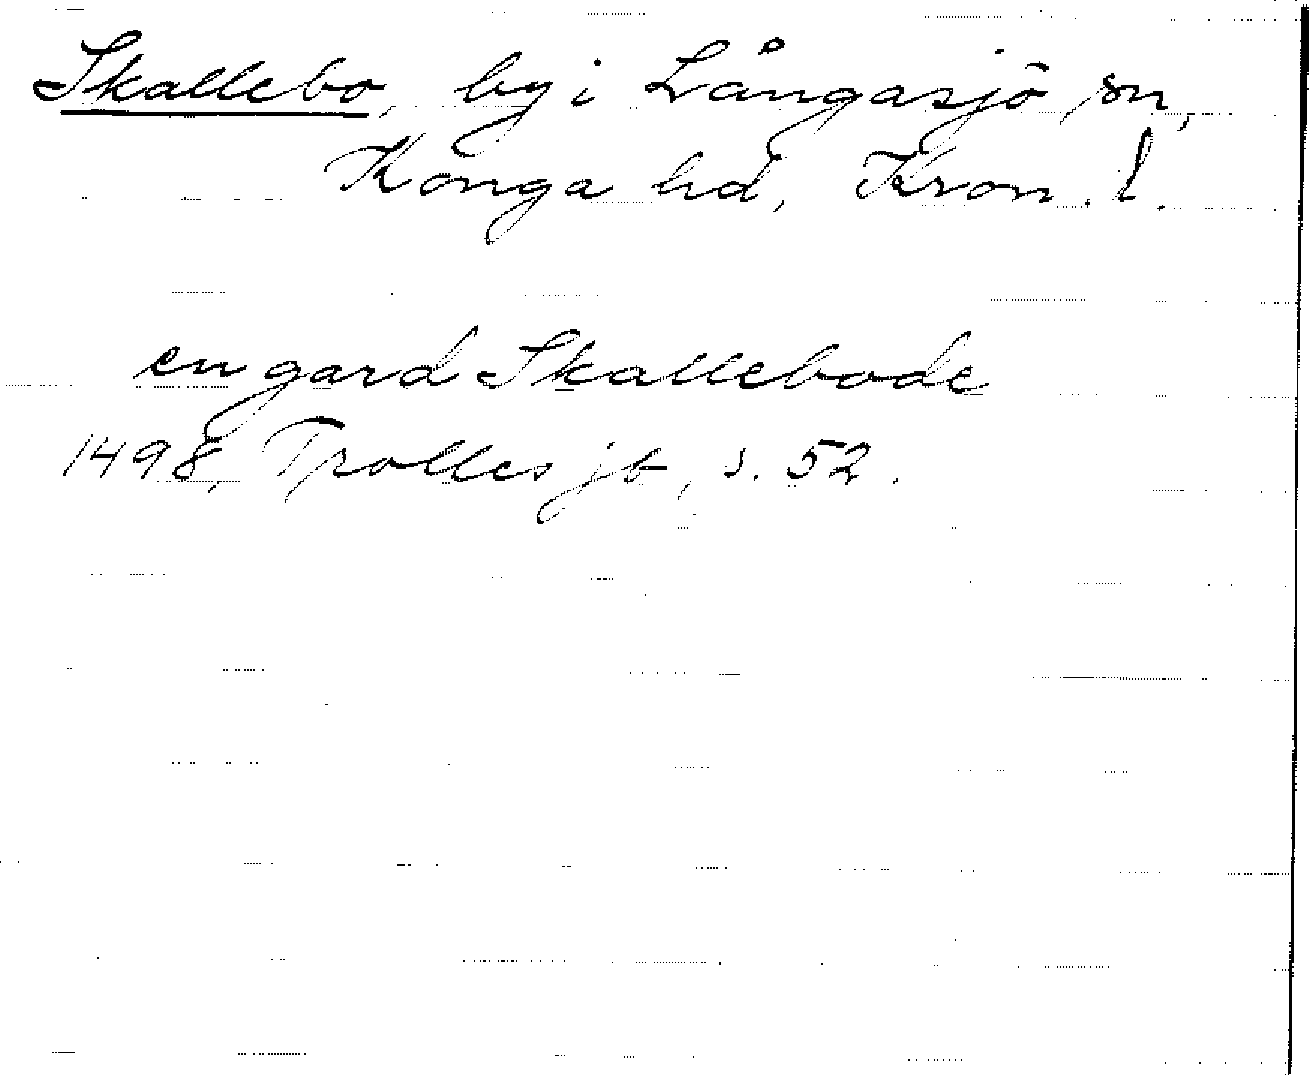 Skallebo, by i Långasjö sn,
Konga hd, Kron. l.
en gard Skallebode
1498, Trolles jb, s. 52.